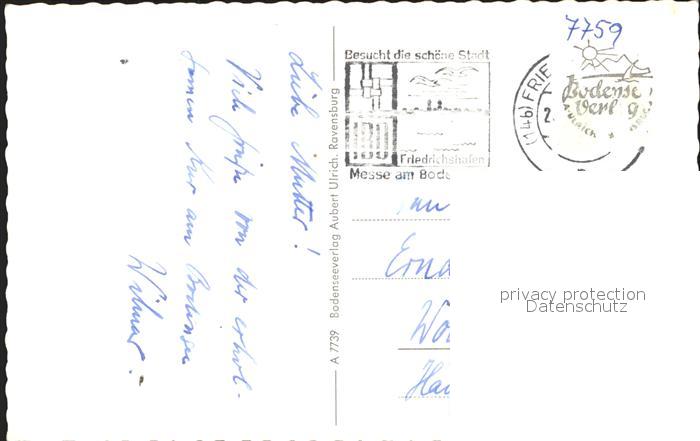 Liebe Mutter!
Viele Grüße von der erhol-
samen Kur am Bodensee
Wilmar.
A 7739 Bodenseeverlag Aubert Ulrich, Ravensburg
Besucht die schöne Stadt
Friedrichshafen
Messe am Bode
(14b) FRIE
2.
7759
Bodense
Verl g
Erna
Wo
Han
privacy protection
Datenschutz